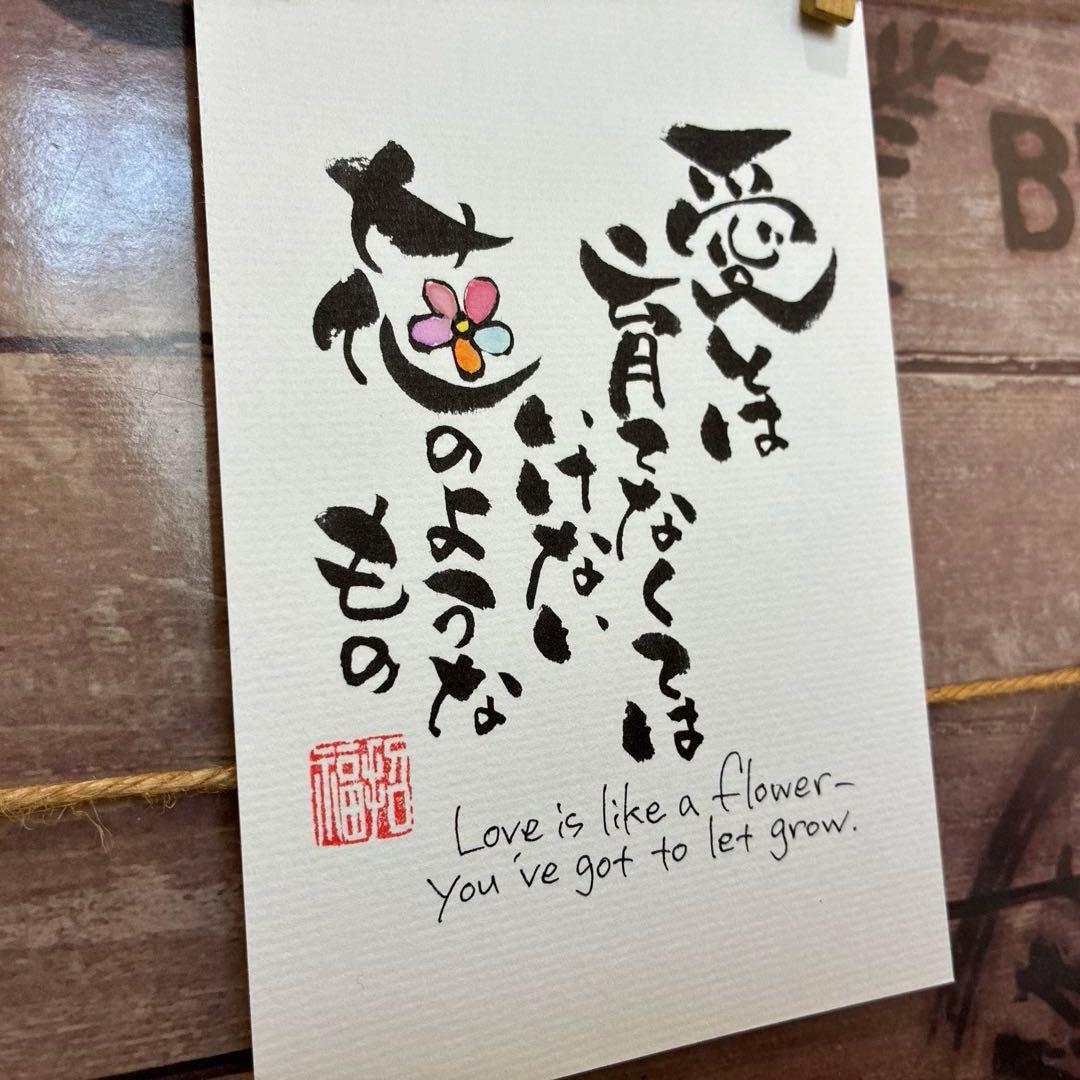 愛とは
育てなくては
いけない
花のような
もの
Love is like a flower-
you've got to let grow.